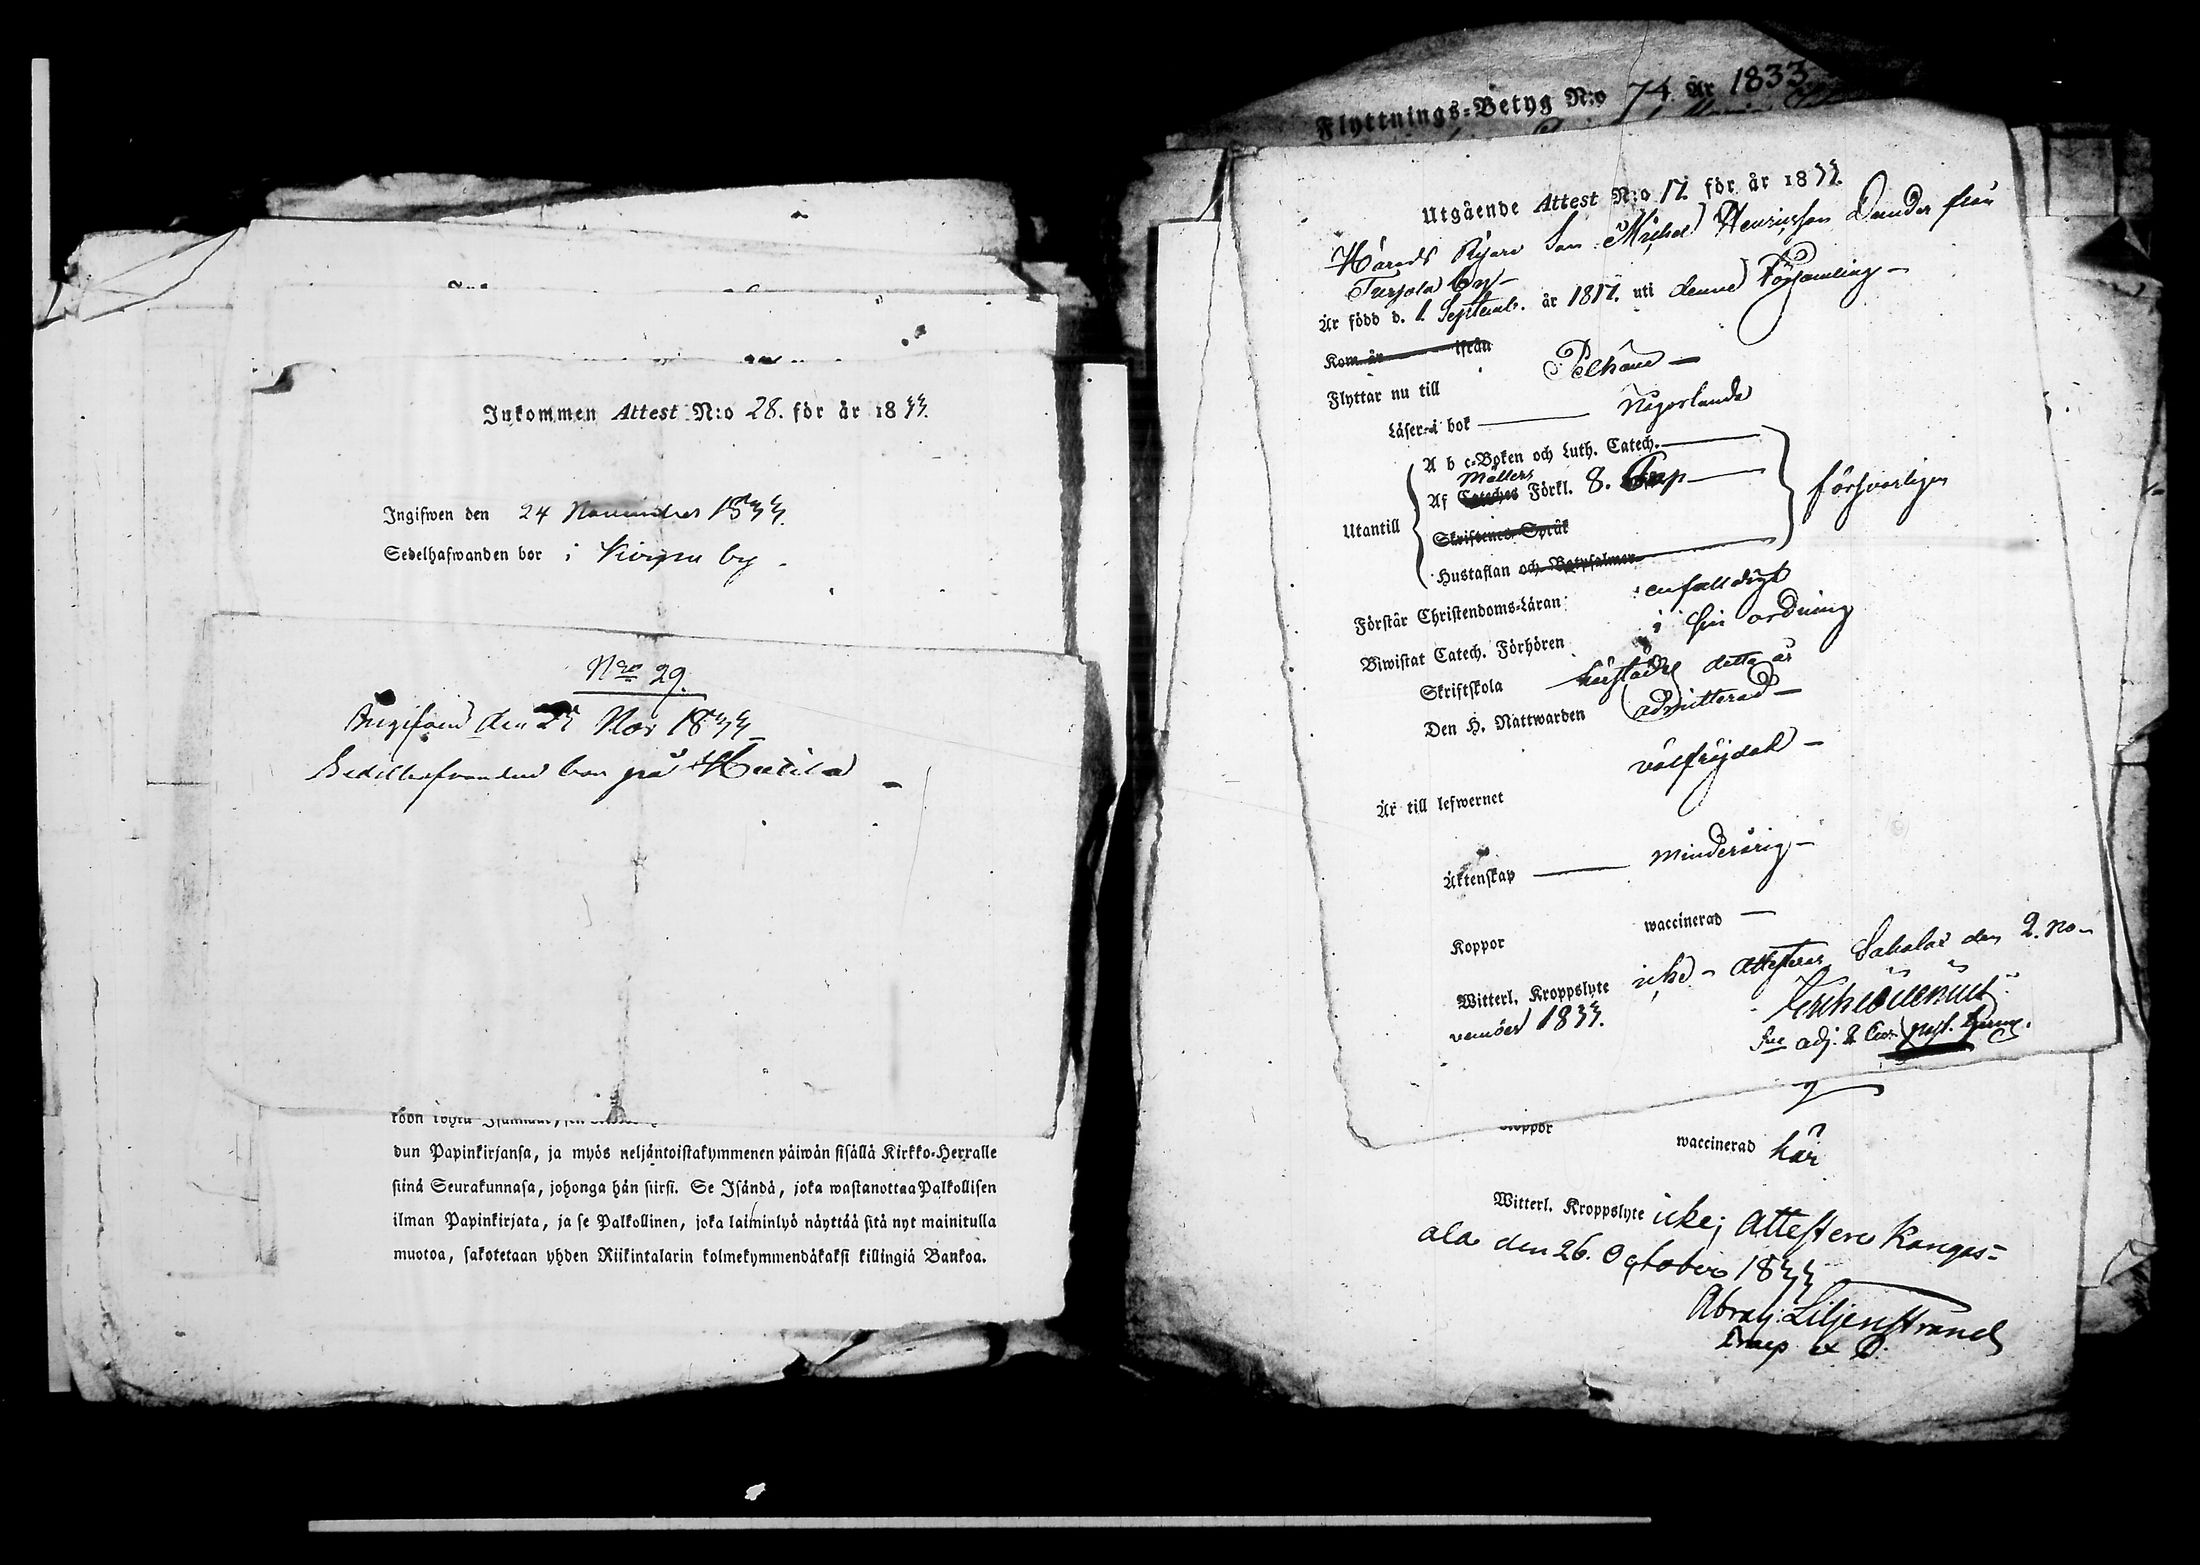 Inkommen Attest N:o 28. för år 1833.
Ingifwen den 24 November 1833.
Sedelhafwanden bor i by
Nro 29.
Ingifven den 25 Nov 1833
Sedelhafvanden bor på
dun Papinkirjansa, ja myös neljäntoistakymmenen päiwän sisällä Kirkko-Herralle
siinä Seurakunnasa, johonga hän siirsi. Se Isändä, joka wastanottaa Palkollisen
ilman Papinkirjata, ja se Palkollinen, joka laiminlyö näyttää sitä nyt mainitulla
muotoa, sakotetaan yhden Riikintalarin kolmekymmendäkaksi killingiä Bankoa.
Flyttnings-Betyg N:o 74 År 1833
Utgående Attest N:o 17. för år 1833.
Härads Son Michel Henricsson från
by
Är född d. 1 Septemb. år 1817. uti denna Församling
Kom år ifrån
Flyttar nu till Pelkäne
Läser i bok någorlunda
A b c-Boken och Luth. Catech.
Möllers
Af Cateches Förkl. 8. Cap
Utantill
försvarligen
Skriftenes Språk
Hustaflan och Botpsalmer
Förstår Christendoms-Läran enfalldigt
Biwistat Catech. Förhören i sin ordning
Skriftskola detta år
Den H. Nattwarden admitterad
Är till lefwernet välfrejdad
Äktenskap Minderårig
Koppor waccinerad
Witterl. Kroppslyte icke attesterar Sahalax den 2. No-
vember 1833.
Koppor waccinerad här
Witterl. Kroppslyte icke; Attestera Kangas=
ala den 26. October 1833
Abrah: Liljenstrand